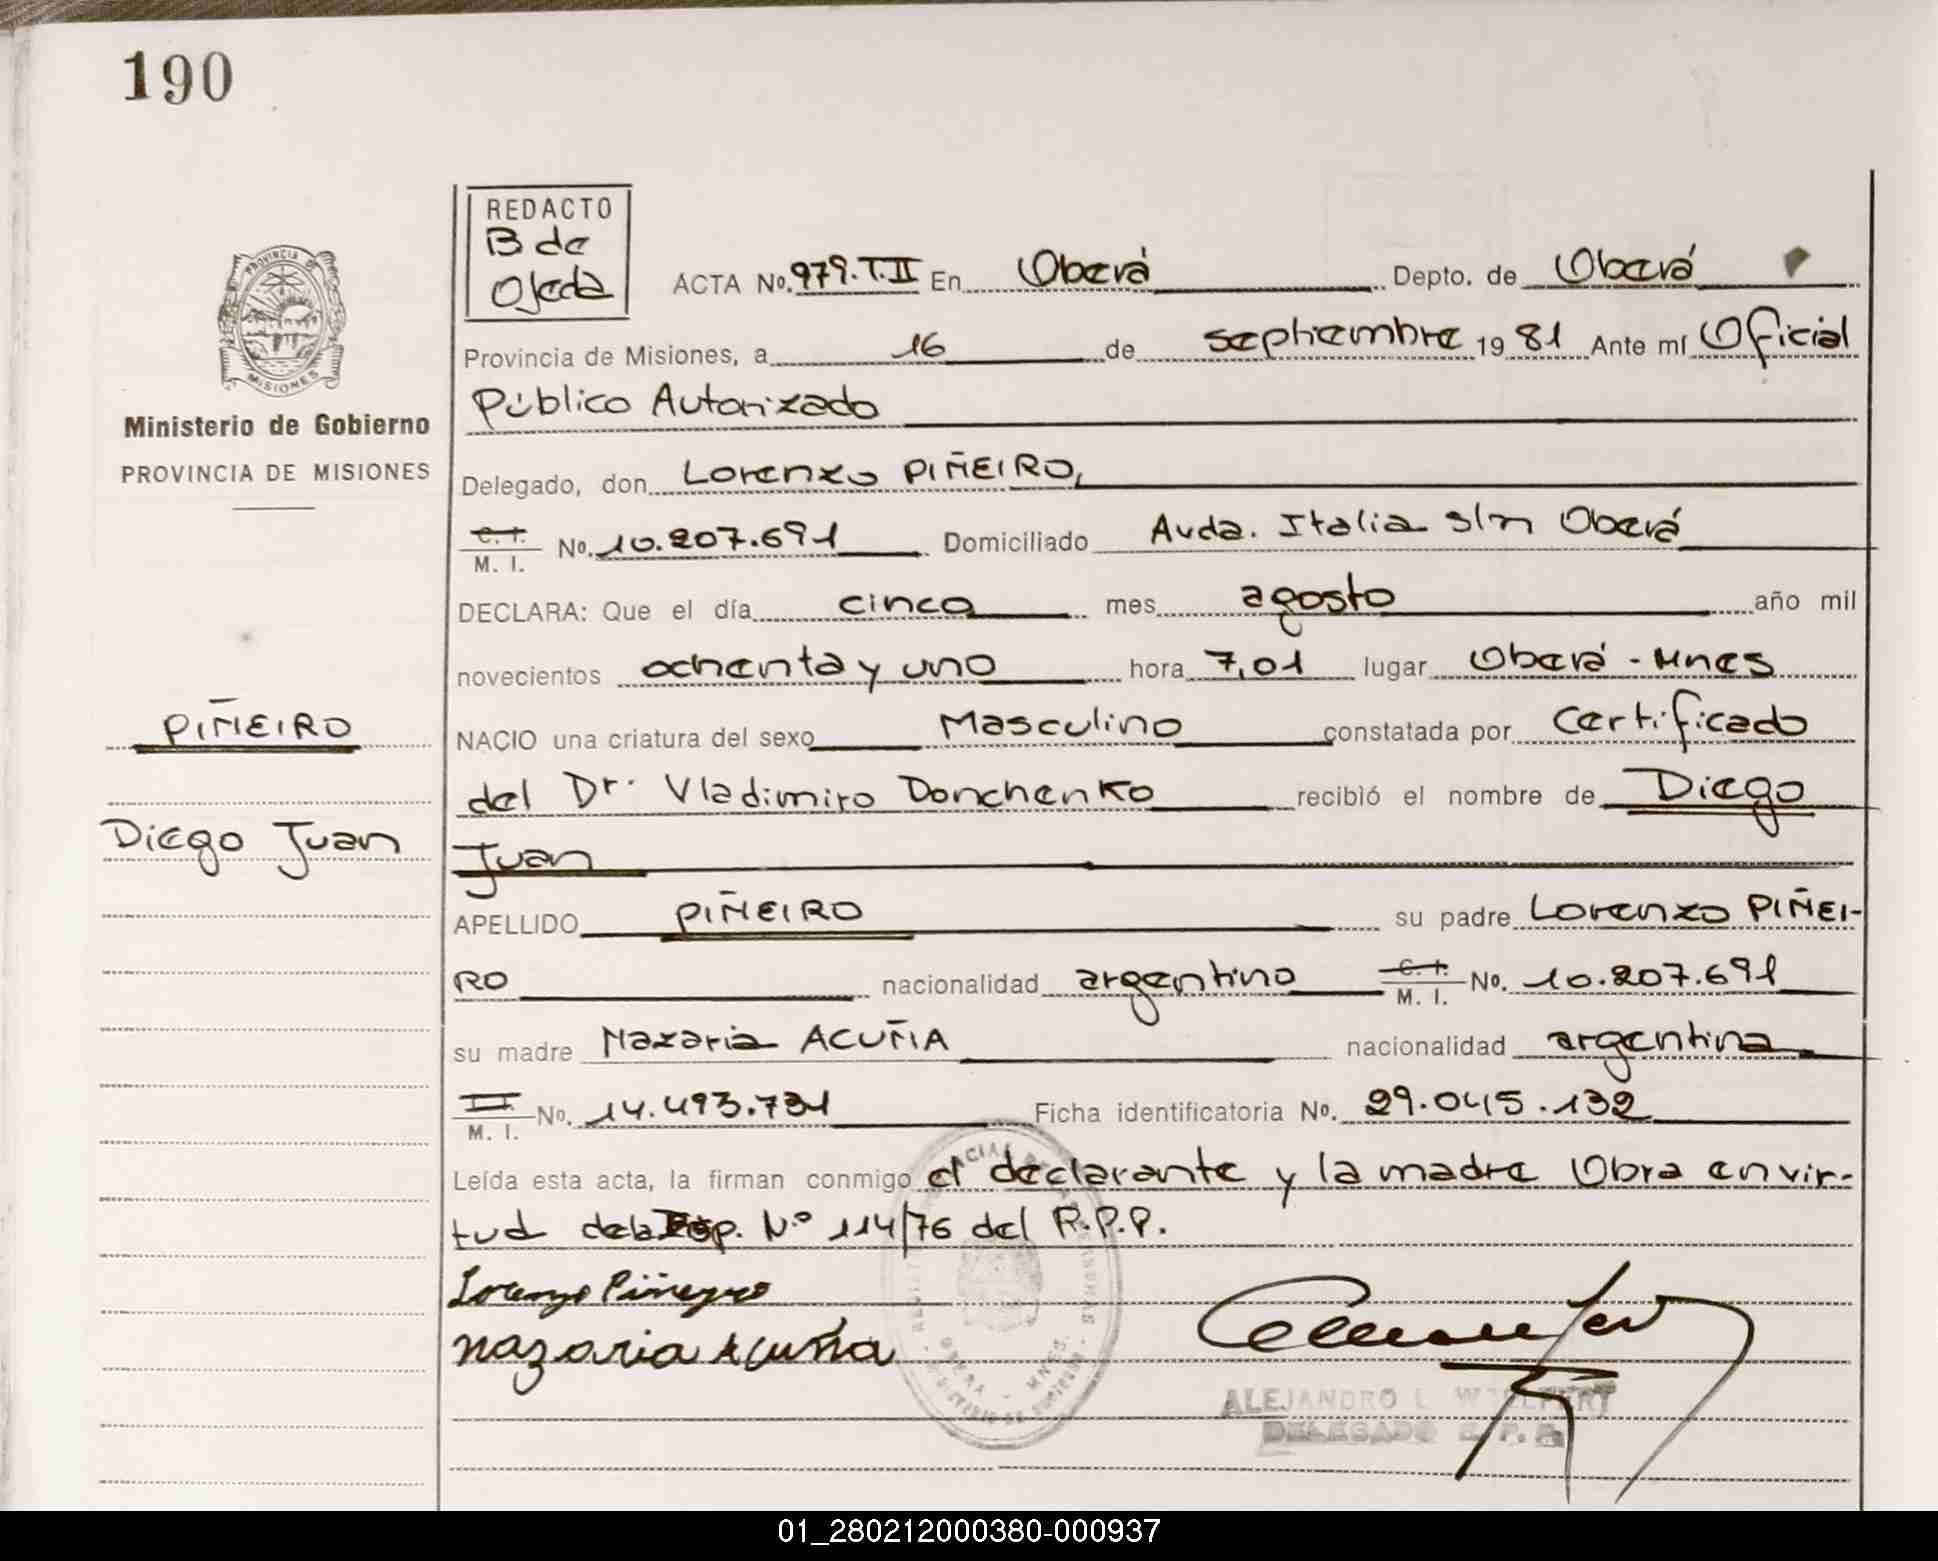 190
REDACTO
B de
Ojeda
ACTA No. 979.T.II En Oberá Depto. de Oberá
PROVINCIA DE
MISIONES
Provincia de Misiones, a 16 de septiembre 19 81 Ante mí Oficial
Público Autorizado
Ministerio de Gobierno
PROVINCIA DE MISIONES
Delegado, don Lorenzo PIÑEIRO,
C. I.
M. I. No. 10.207.691 Domiciliado Avda. Italia s/n Oberá
DECLARA: Que el día cinco mes agosto año mil
novecientos ochenta y uno hora 7,01 lugar Oberá - Mnes
PIÑEIRO
NACIO una criatura del sexo Masculino constatada por Certificado
del Dr. Vladimiro Donchenko recibió el nombre de Diego
Diego Juan
Juan
APELLIDO PIÑEIRO su padre Lorenzo PIÑEI-
RO nacionalidad argentino C. I.
M. I. No. 10.207.691
su madre Nazaria ACUÑA nacionalidad argentina
M. I. No. 14.493.731 Ficha identificatoria No. 29.045.132
Leída esta acta, la firman conmigo el declarante y la madre Obra en vir-
tud de la p. Nº 114/76 del R.P.P.
Lorenzo Piñeyro
nazaria Acuña
OBERA - MNES.
ALEJANDRO L
DELEGADO R. P. P.
01_280212000380-000937